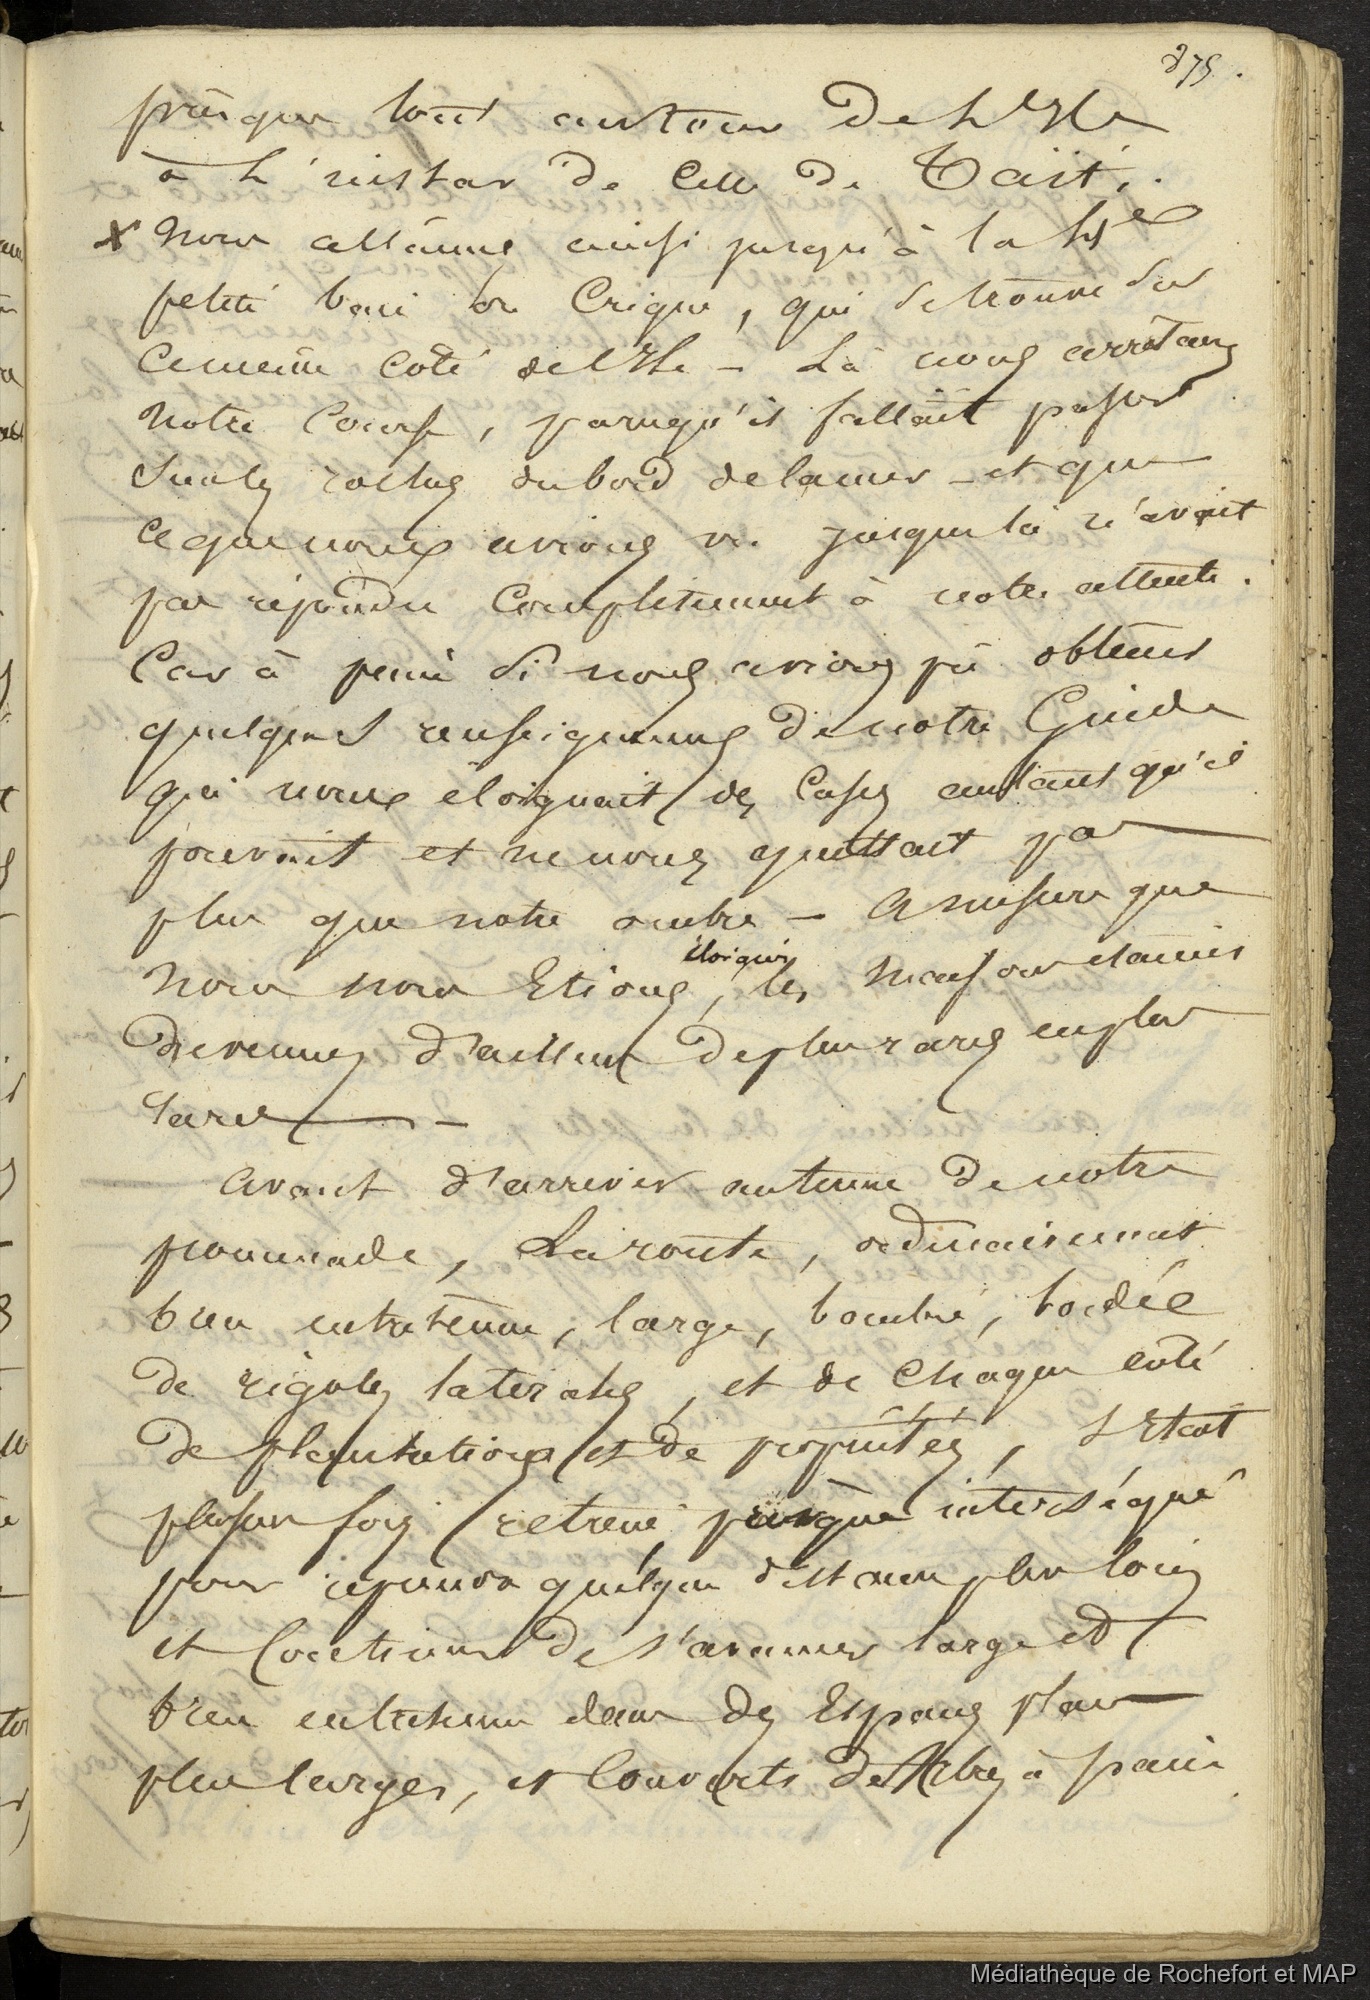 275.
présque tout autour de L'Isle
à L'instar de Celle de Taïti.
x Nous allâmes ainsi jusqu'à la
petite baie ou Crique, qui se trouve sur
ce même côté de l'Isle - Là nous arrêtames
Notre Course, parcequ'il fallait passer
sur les roches du bord de la mer - et que
ce que nous avions vu jusque là n'avait
pas répondu Complètement à notre attente.
Car à peine si nous avions pû obtenir
quelques renseignemens de notre Guide
qui nous éloignait des Cases autant qu'il
pouvait et ne nous quittait pas
plus que notre ombre - A mesure que
Nous nous Etions éloignés, les maisons étaient
devenues d'ailleurs de plus rares en plus
rares -
Avant d'arriver au terme de notre
promenade, La route, ordinairement
bien entretenue, large, bombée, bordée
de rigoles laterales, et de Chaque côté
de plantations et de propriétés, s'Etait
plusieurs fois retrecie, presque interséquée
pour reprendre quelque distance plus loin
et Continuer de s'avancer large et
bien entretenue dans des Espaces plus
plus larges, et Couverts d'Arbres à pain
Médiathèque de Rochefort et MAP